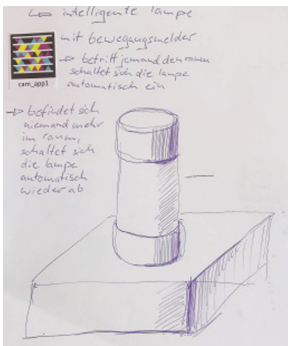 ↳ intelligente lampe
mit bewegungsmelder
→ betritt jemand den raum
schaltet sich die lampe
automatisch ein
cam_app1
→ befindet sich
niemand mehr
im raum,
schaltet sich
die lampe
automatisch
wieder ab